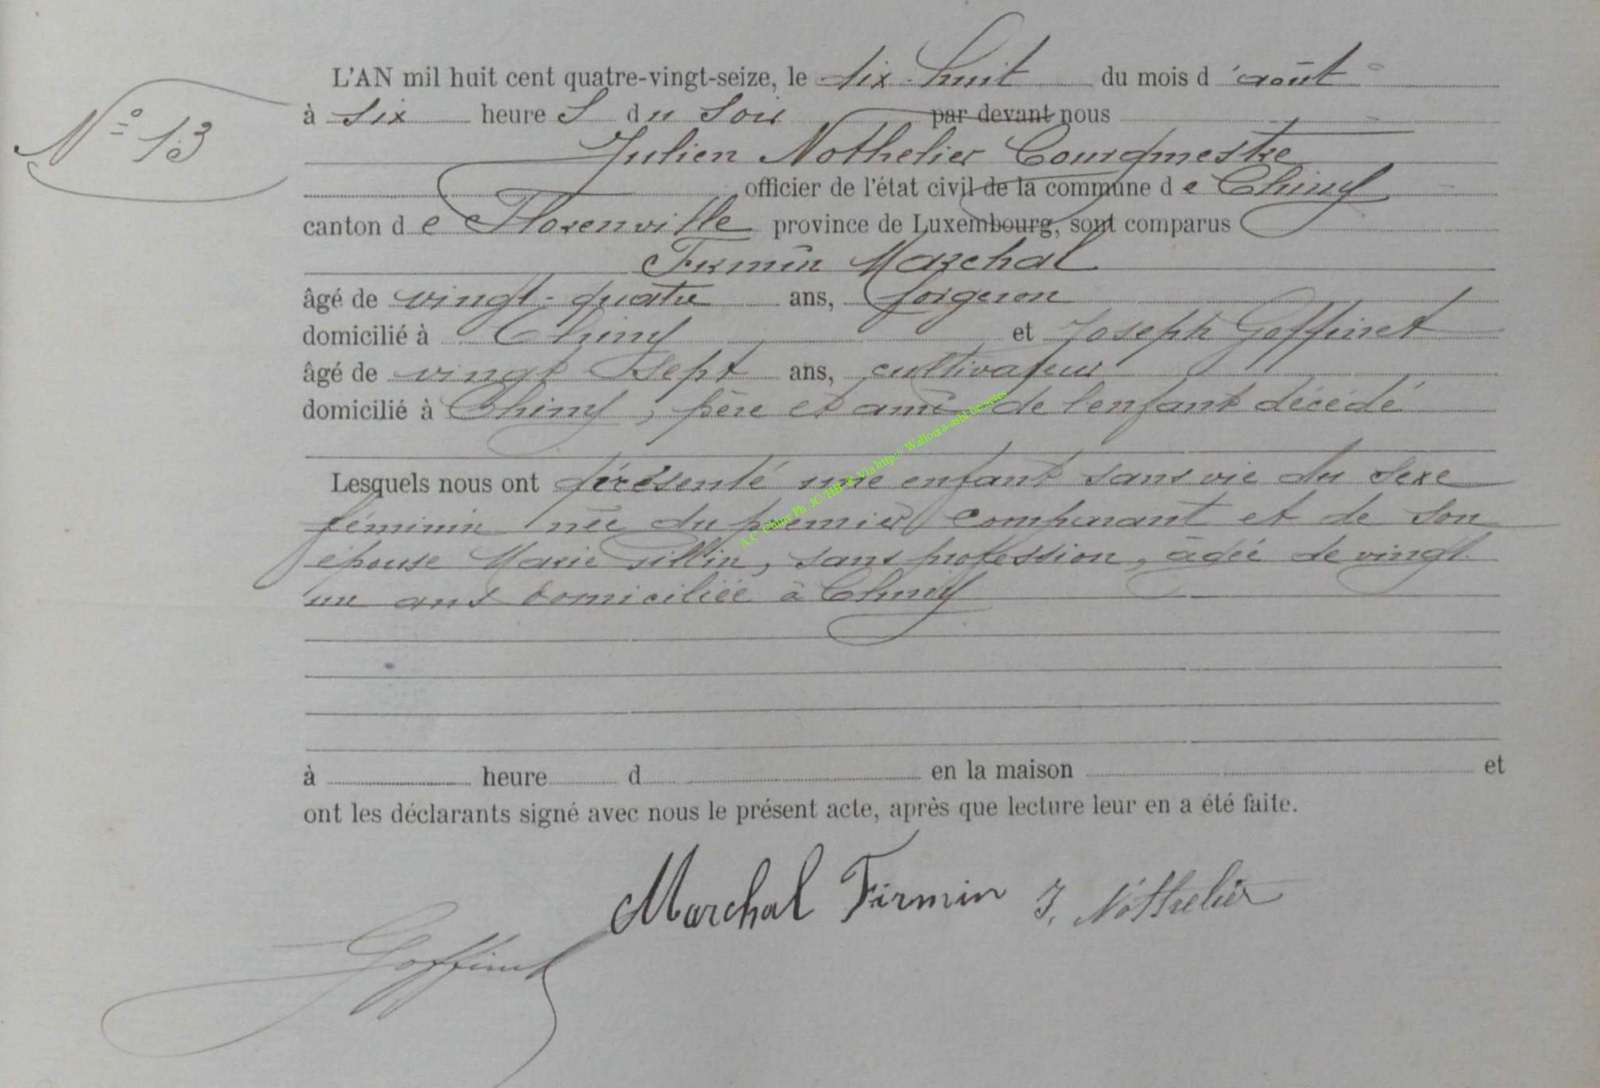 L'AN mil huit cent quatre-vingt-seize, le dix-huit du mois d'août
N° 13
à six heure s du soir par devant nous
Julien Nothelier Bourgmestre
officier de l'état civil de la commune de Chiny
canton de Florenville province de Luxembourg, sont comparus
Firmin Marchal
âgé de vingt-quatre ans, forgeron
domicilié à Chiny et Joseph Goffinet
âgé de vingt sept ans, cultivateur
domicilié à Chiny, père et ami de l'enfant décédé
Lesquels nous ont présenté une enfant sans vie du sexe
féminin née du premier comparant et de son
épouse Marie, sans profession, âgée de vingt
un ans domiciliée à Chiny
à heure d en la maison et
ont les déclarants signé avec nous le présent acte, après que lecture leur en a été faite.
Marchal Firmin J. Nothelier
Goffinet